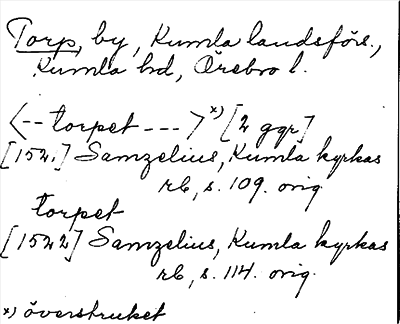 Torp, by, Kumla landsförs.,
Kumla hd, Örebro l.
<-- torpet --->x) [2 ggr]
[1521] Samzelius, Kumla kyrkas
rb, s. 109. orig.
torpet
[1522] Samzelius, Kumla kyrkas
rb, s. 114. orig.
x) överstruket